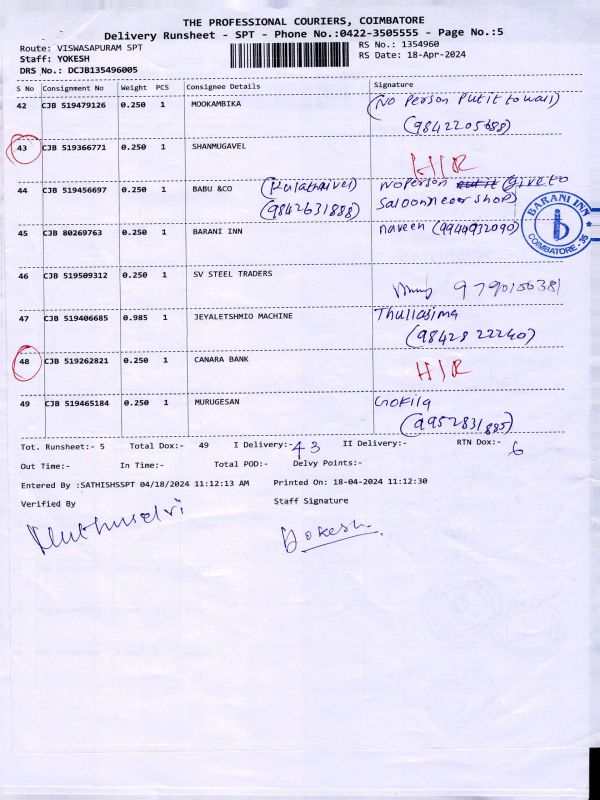 THE PROFESSIONAL COURIERS, COIMBATORE
Delivery Runsheet - SPT - Phone No.:0422-3505555 - Page No.:5
Route: VISWASAPURAM SPT
RS No.: 1354960
Staff: YOKESH
RS Date: 18-Apr-2024
DRS No.: DCJB135496005
S No Consignment No Weight PCS Consignee Details Signature
42 CJB 519479126 0.250 1 MOOKAMBIKA (No Person Put it to wall)
(9842205688)
43 CJB 519366771 0.250 1 SHANMUGAVEL
HIR
44 CJB 519456697 0.250 1 BABU &CO (Kulathaivel) No Person give to
(9842631888) Saloon near shop)
45 CJB 80269763 0.250 1 BARANI INN naveen (9944932090)
BARANI INN
COIMBATORE - 35
46 CJB 519509312 0.250 1 SV STEEL TRADERS
9790156381
47 CJB 519406685 0.985 1 JEYALETSHMIO MACHINE Thuliasima
(9842822240)
48 CJB 519262821 0.250 1 CANARA BANK
HIR
49 CJB 519465184 0.250 1 MURUGESAN Gokila
(9952831885)
Tot. Runsheet:- 5 Total Dox:- 49 I Delivery:- 43 II Delivery:- RTN Dox:- 6
Out Time:- In Time:- Total POD:- Delvy Points:-
Entered By :SATHISHSSPT 04/18/2024 11:12:13 AM Printed On: 18-04-2024 11:12:30
Verified By Staff Signature
Muthuselvi Yokesh